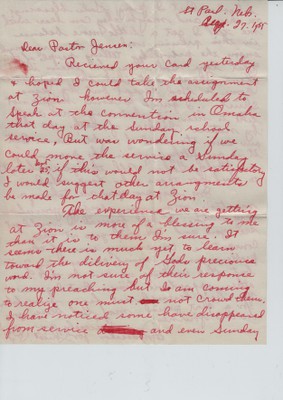 St Paul. Neb.
Aug. 27, 1955
Dear Pastor Jensen:
Recieved your card yesterday
& hoped I could take the assignment
at Zion. However I'm scheduled to
speak at the convention in Omaha
that day at the Sunday school
service, But was wondering if we
could move the service a Sunday
later or if this would not be satisfactory
I would suggest other arrangments
be made for that day at Zion.
The experience we are getting
at Zion is more of a blessing to me
than it is to them I'm sure. It
seems there is much yet to learn
toward the dilivery of Gods precious
word. I'm not sure of their response
to my preaching but I am coming
to realize one must not crowd them.
I have noticed some have disappeared
from service and even Sunday